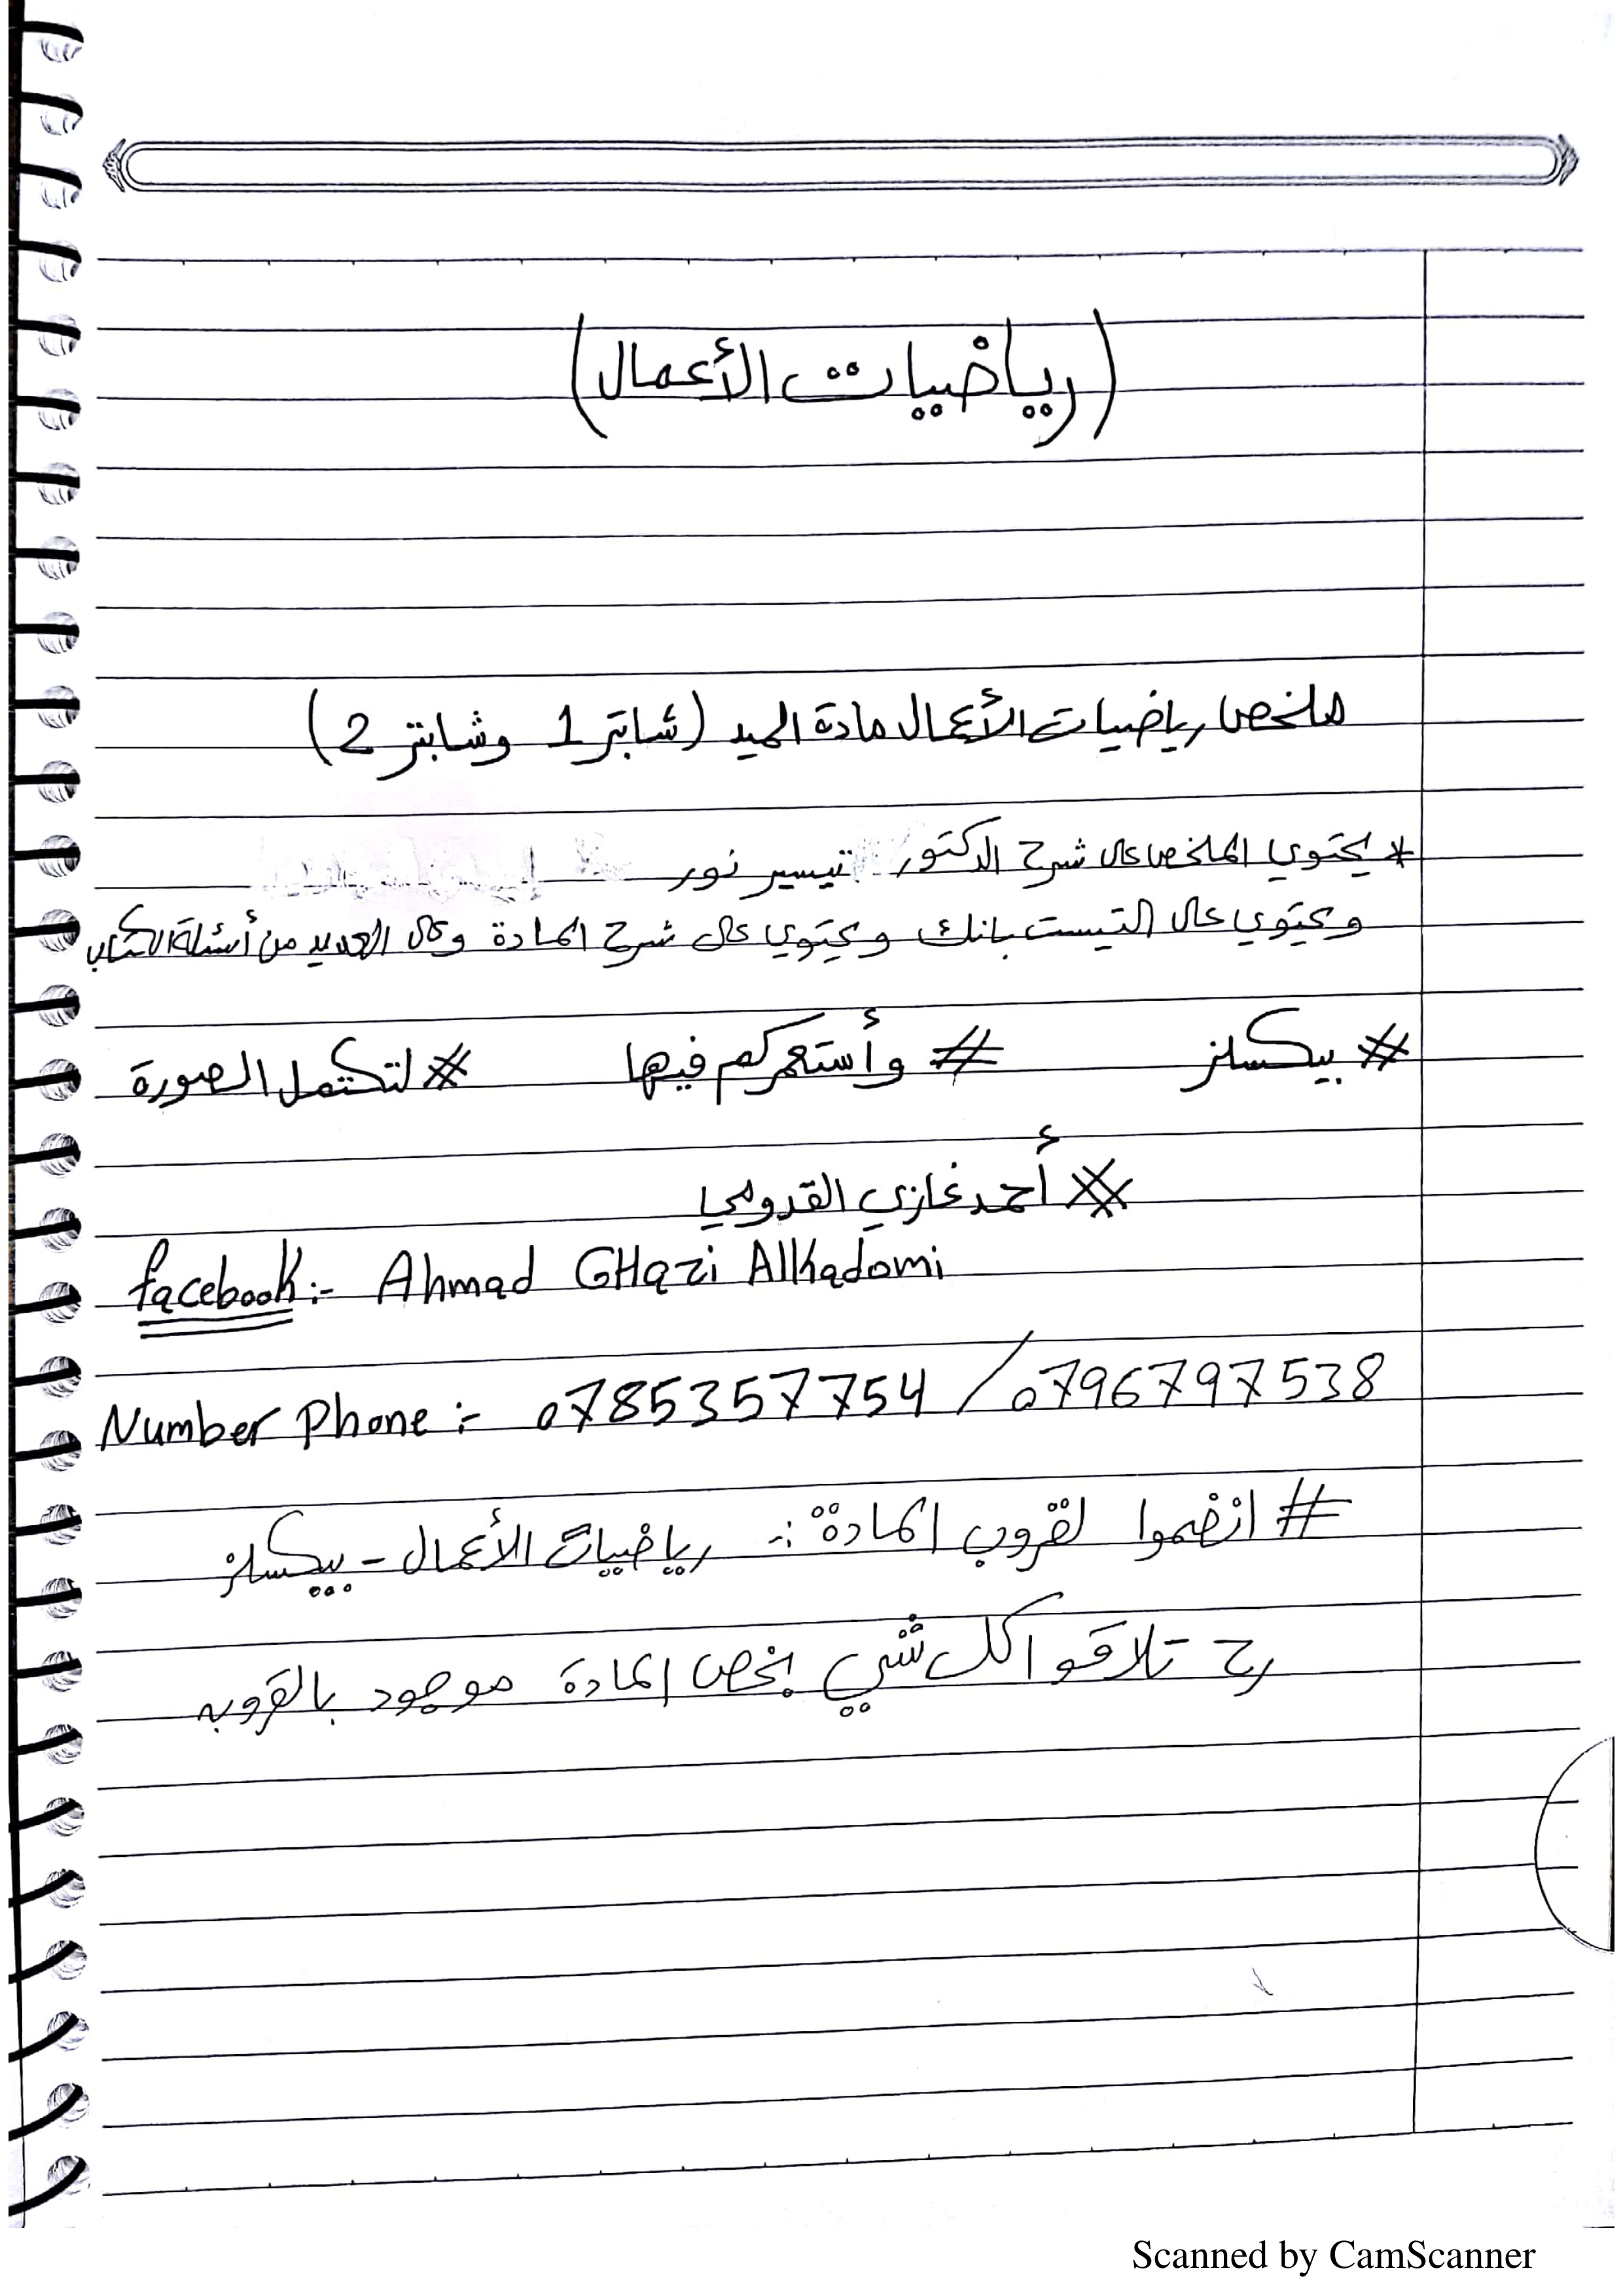 (رياضيات الأعمال)
ملخص رياضيات الأعمال مادة الميد (شابتر 1 وشابتر 2)
* يحتوي الملخص على شرح الدكتور تيسير نور
ويحتوي على التيست بانك ويحتوي على شرح المادة وعلى العديد من أسئلة الكتاب
# بيكسلز # وأستعمركم فيها # لتكتمل الصورة
# أحمد غازي القدومي
facebook:- Ahmad GHazi Alkadomi
Number Phone:- 0785357754 / 0796797538
# انضموا لقروب المادة:- رياضيات الأعمال - بيكسلز
رح تلاقوا كل شي بخص المادة موجود بالقروب
Scanned by CamScanner